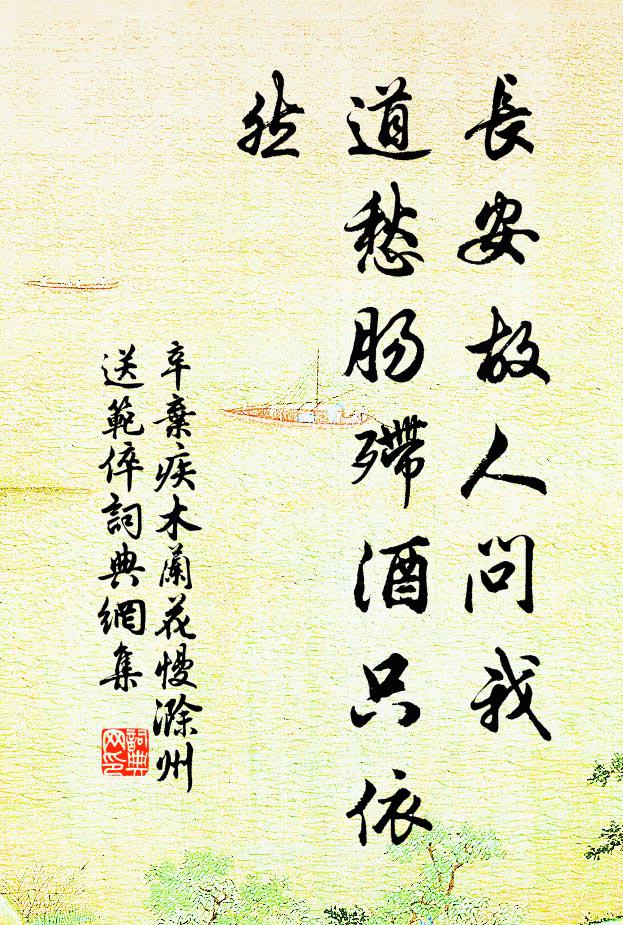 長安故人問我
道愁腸殢酒只依
然
辛棄疾木蘭花慢滁州
送範倅詞典網集
詞典
网印